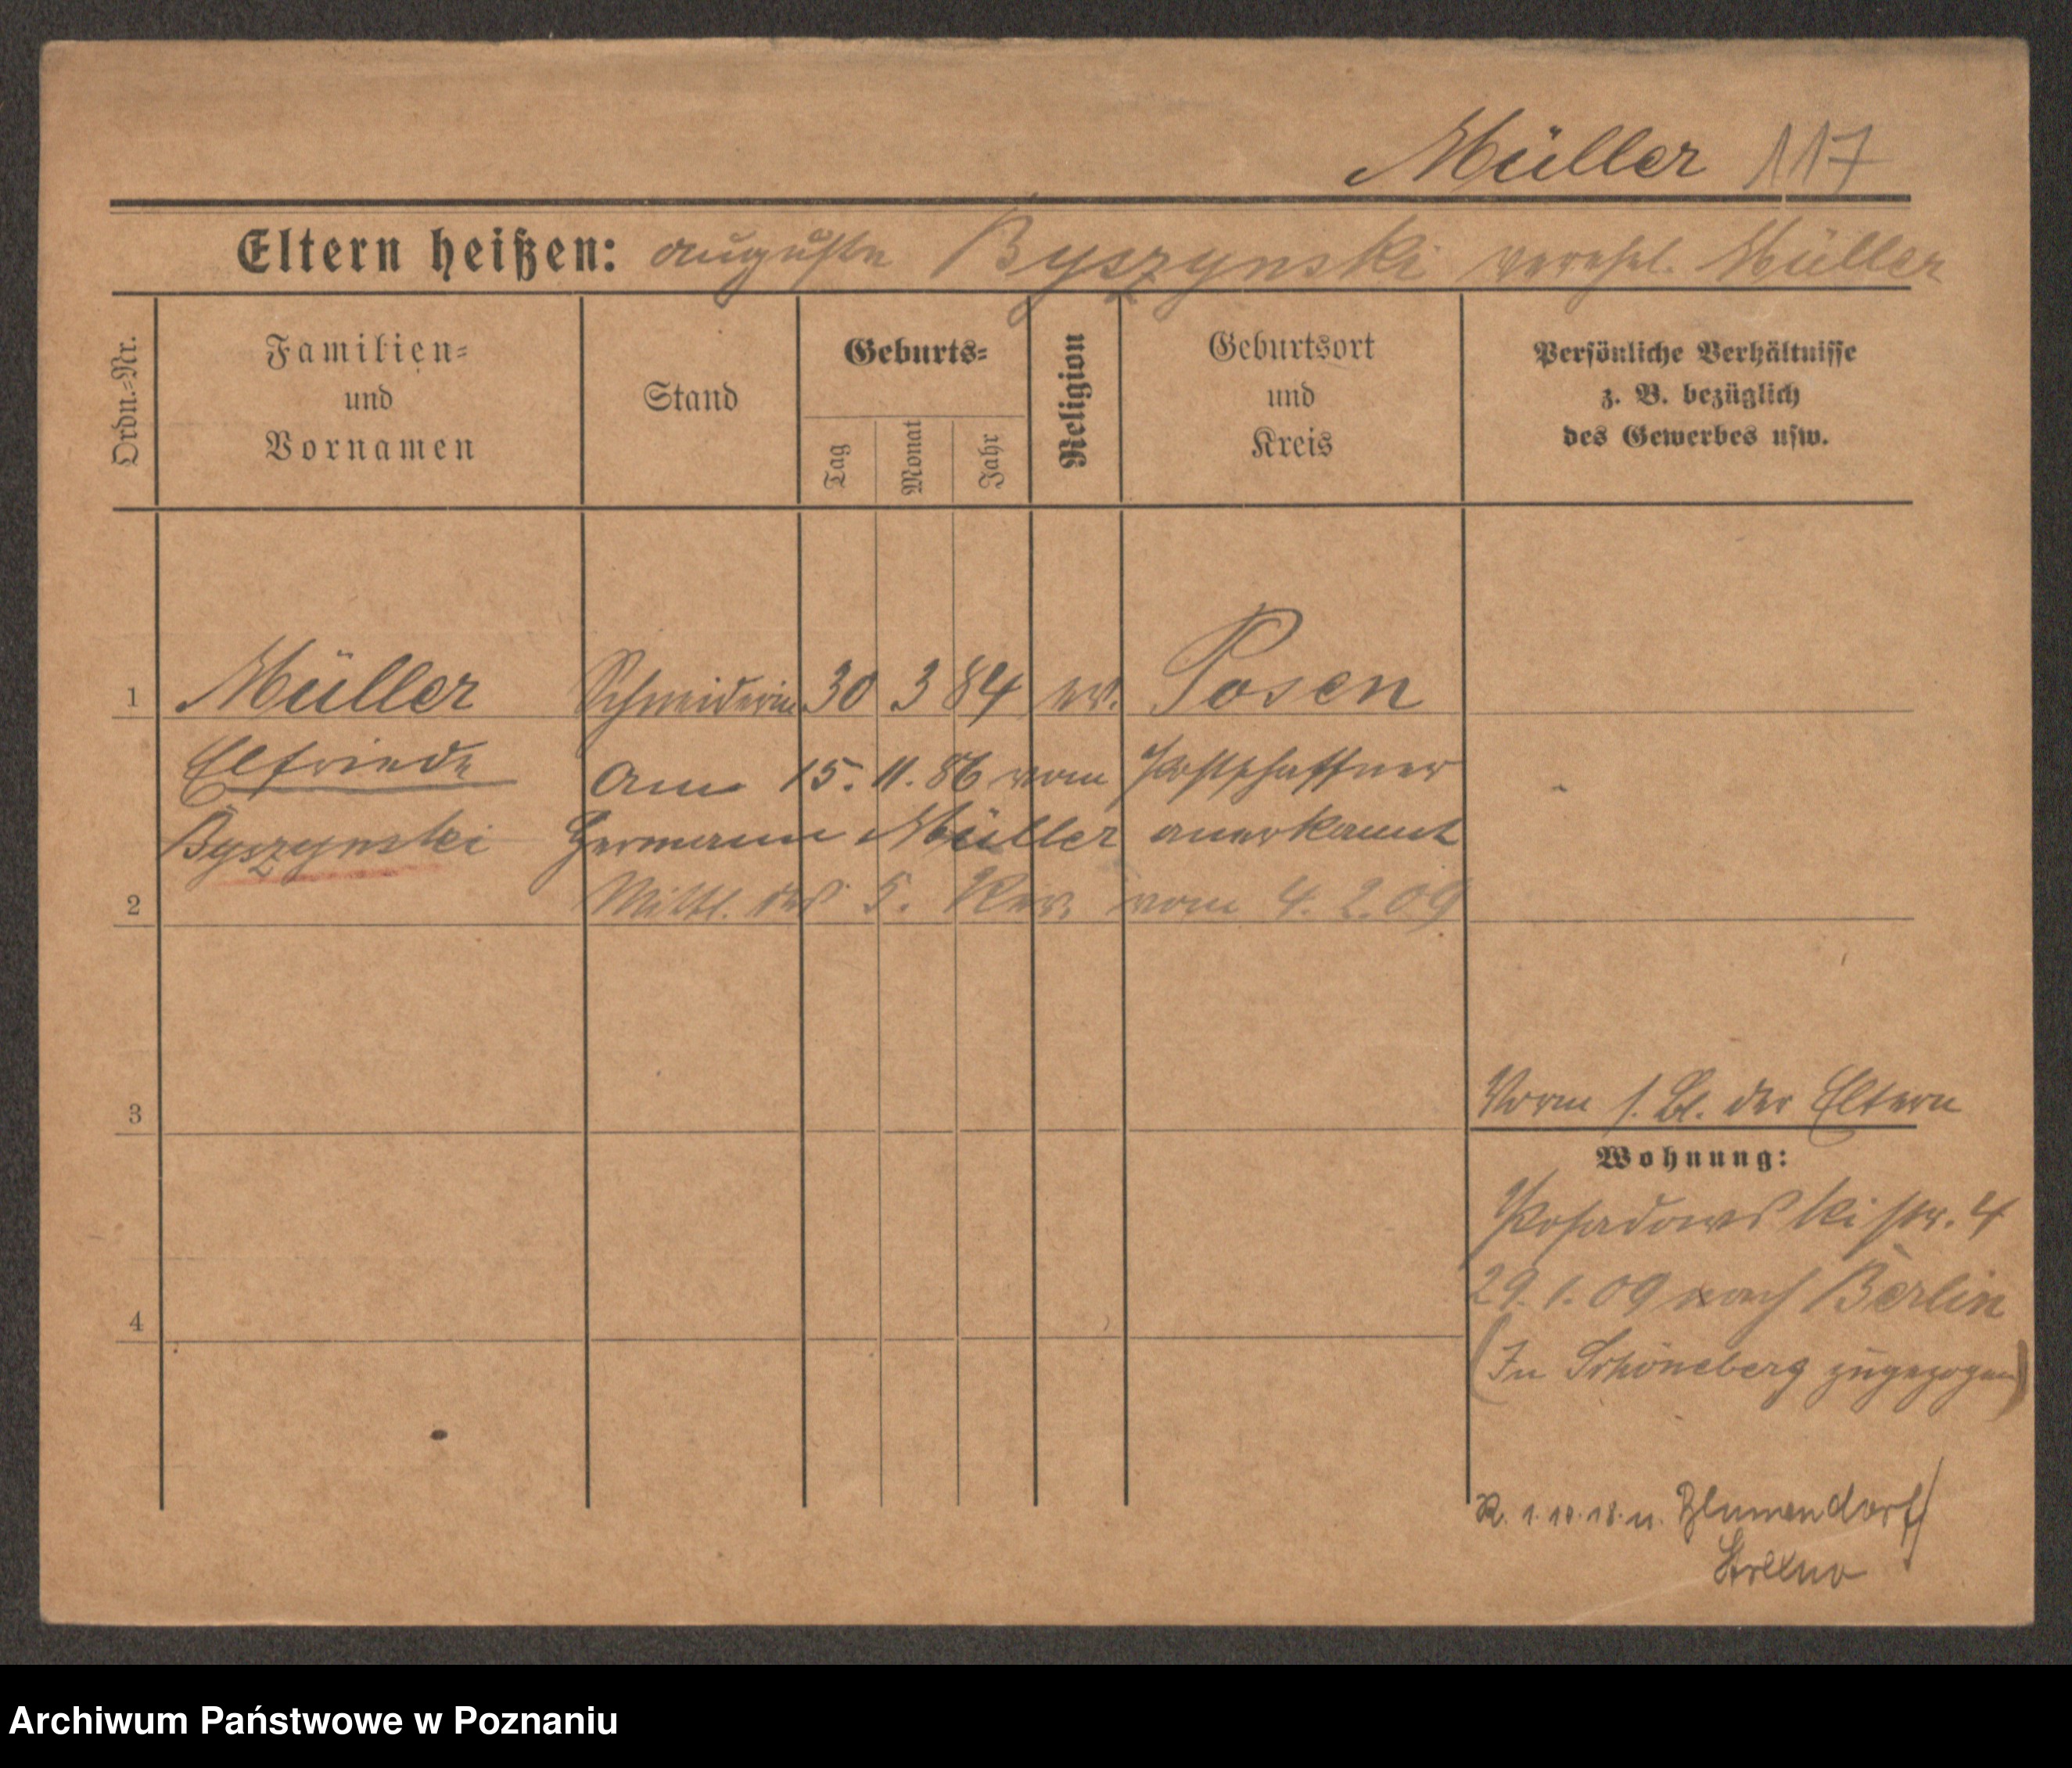 Müller 117
Eltern heißen: Auguste Byszynski verehel. Müller
Ordn.-Nr.
Familien-
und
Vornamen
Stand
Geburts-
Tag
Monat
Jahr
Religion
Geburtsort
und
Kreis
Persönliche Verhältnisse
z. B. bezüglich
des Gewerbes usw.
1 Müller Schneiderin 30 3 84 ev. Posen
Elfriede Am 15. 11. 86 vom Postschaffner
Byszynski Hermann Müller anerkannt
2 Mittl. des 5. Rev. vom 4. 2. 09
3 Vorm s. Bl. der Eltern
Wohnung:
Posadowskistr. 4
29. 1. 09 nach Berlin
4
(In Schöneberg zugezogen)
R. 1. 10. 18. n. Blumendorf
Strelno
Archiwum Państwowe w Poznaniu